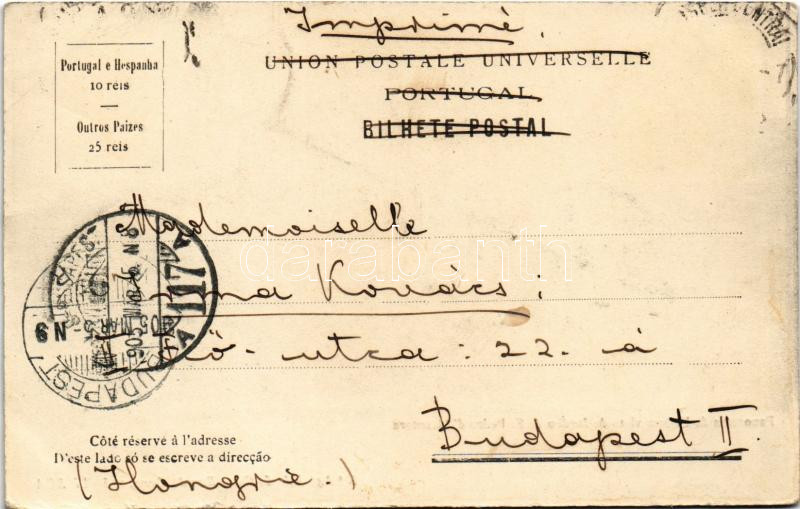 Imprimé.
UNION POSTALE UNIVERSELLE
PORTUGAL
BILHETE POSTAL
Portugal e Hespanha
10 reis
Outros Paizes
25 reis
Mademoiselle
Kovács:
utca: 22. á
Budapest II.
BUDAPEST
905 MAR
N9
A 117 A
N8
Côté réservé à l'adresse
D'este lado só se escreve a direcção
(Hongrie.)
darabanth